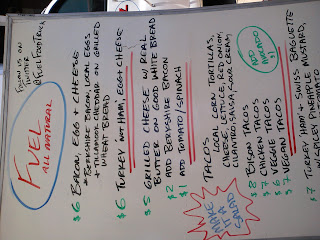 FOLLOW US ON
TWITTER
@FUELFOODTRUCK
FUEL
ALL NATURAL
$6 BACON, EGG + CHEESE
*BERKSHIRE BACON, LOCAL EGGS
+ TILLAMOOK CHEDDAR ON GRILLED
WHEAT BREAD
$6 TURKEY "NOT HAM", EGG + CHEESE
$5 GRILLED CHEESE W/ REAL
BUTTER + GOOD WHITE BREAD
$2 ADD BERKSHIRE BACON
$1 ADD TOMATO/SPINACH
TACOS LOCAL CORN TORTILLAS,
CHEESE, LETTUCE, RED ONION,
CILANTRO, SALSA, SOUR CREAM,
$8 BISON TACOS
$7 CHICKEN TACOS
$6 VEGGIE TACOS
$7 VEGAN TACOS
ADD
AVOCADO
$1
MAKE
IT A
SALAD
$7 TURKEY HAM + SWISS BAGUETTE
W/ SPICEY PINEAPPLE MUSTARD,
TOMATO